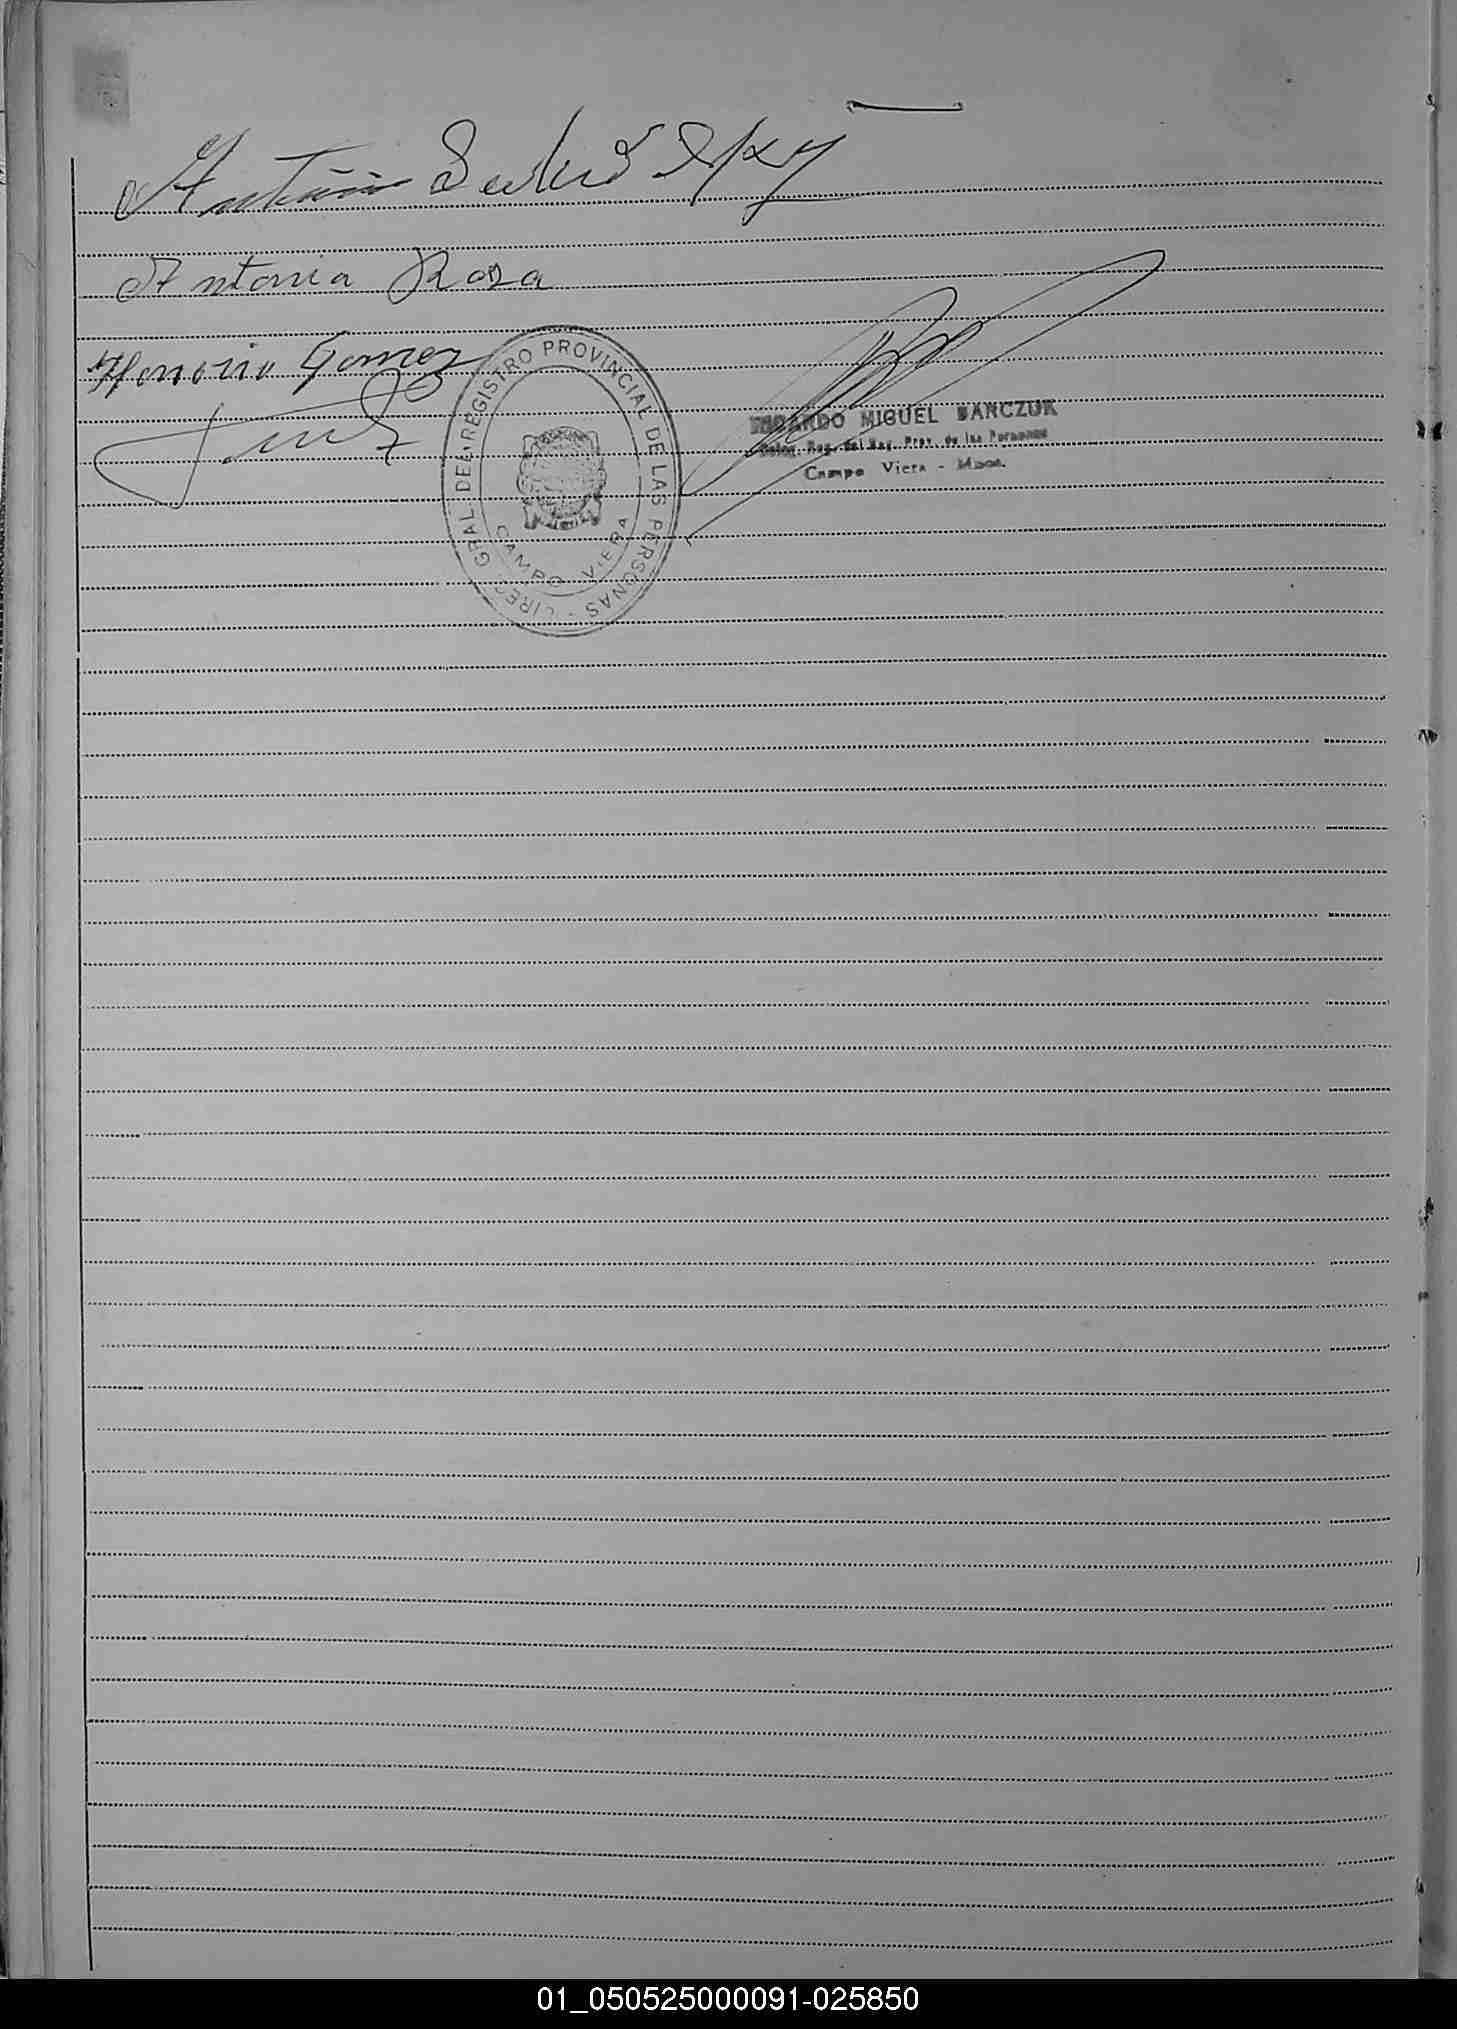 Antonio
Antonia Rosa
Honorio Gomez
DIREC. GRAL. DEL REGISTRO PROVINCIAL DE LAS PERSONAS -
CAMPO VIERA
MIGUEL
Deleg. Reg. del Reg. Prov. de las Personas
Campo Viera - Mnes.
01_050525000091-025850